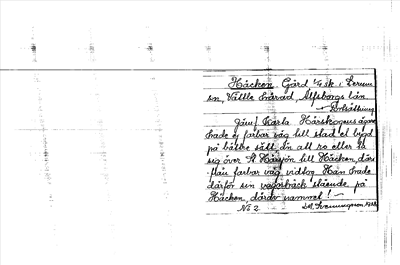 Häcken, Gård 1/4 mk i Lerum
sn, Vättle härad, Älfsborgs län.
Fortsättning
Jäm! Karla Härskogens ägare
hade ej farbar väg till stad el. bygd
på bättre sätt än att ro eller
sig över St. Härsjön till Häcken, där
ifrån farbar väg vidtog. Han hade
därför sin vagnsbäck stående på
Häcken, därav namnet!
No 2.